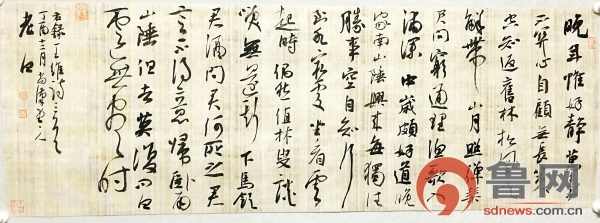 晚年惟好静万事
不关心自顾无长策
空知返旧林松风吹
解带 山月照弹琴
君问穷通理渔歌入
浦深 中岁颇好道晚
家南山陲兴来每独往
胜事空自知行到
水穷处坐看云
起时偶然值林叟谈
笑无还期 下马饮
君酒问君何所之君
言不得意归卧南
山陲但去莫复问白
云无尽时
右录王维诗三首
丁酉十二月
鲁网
sdnews.com.cn